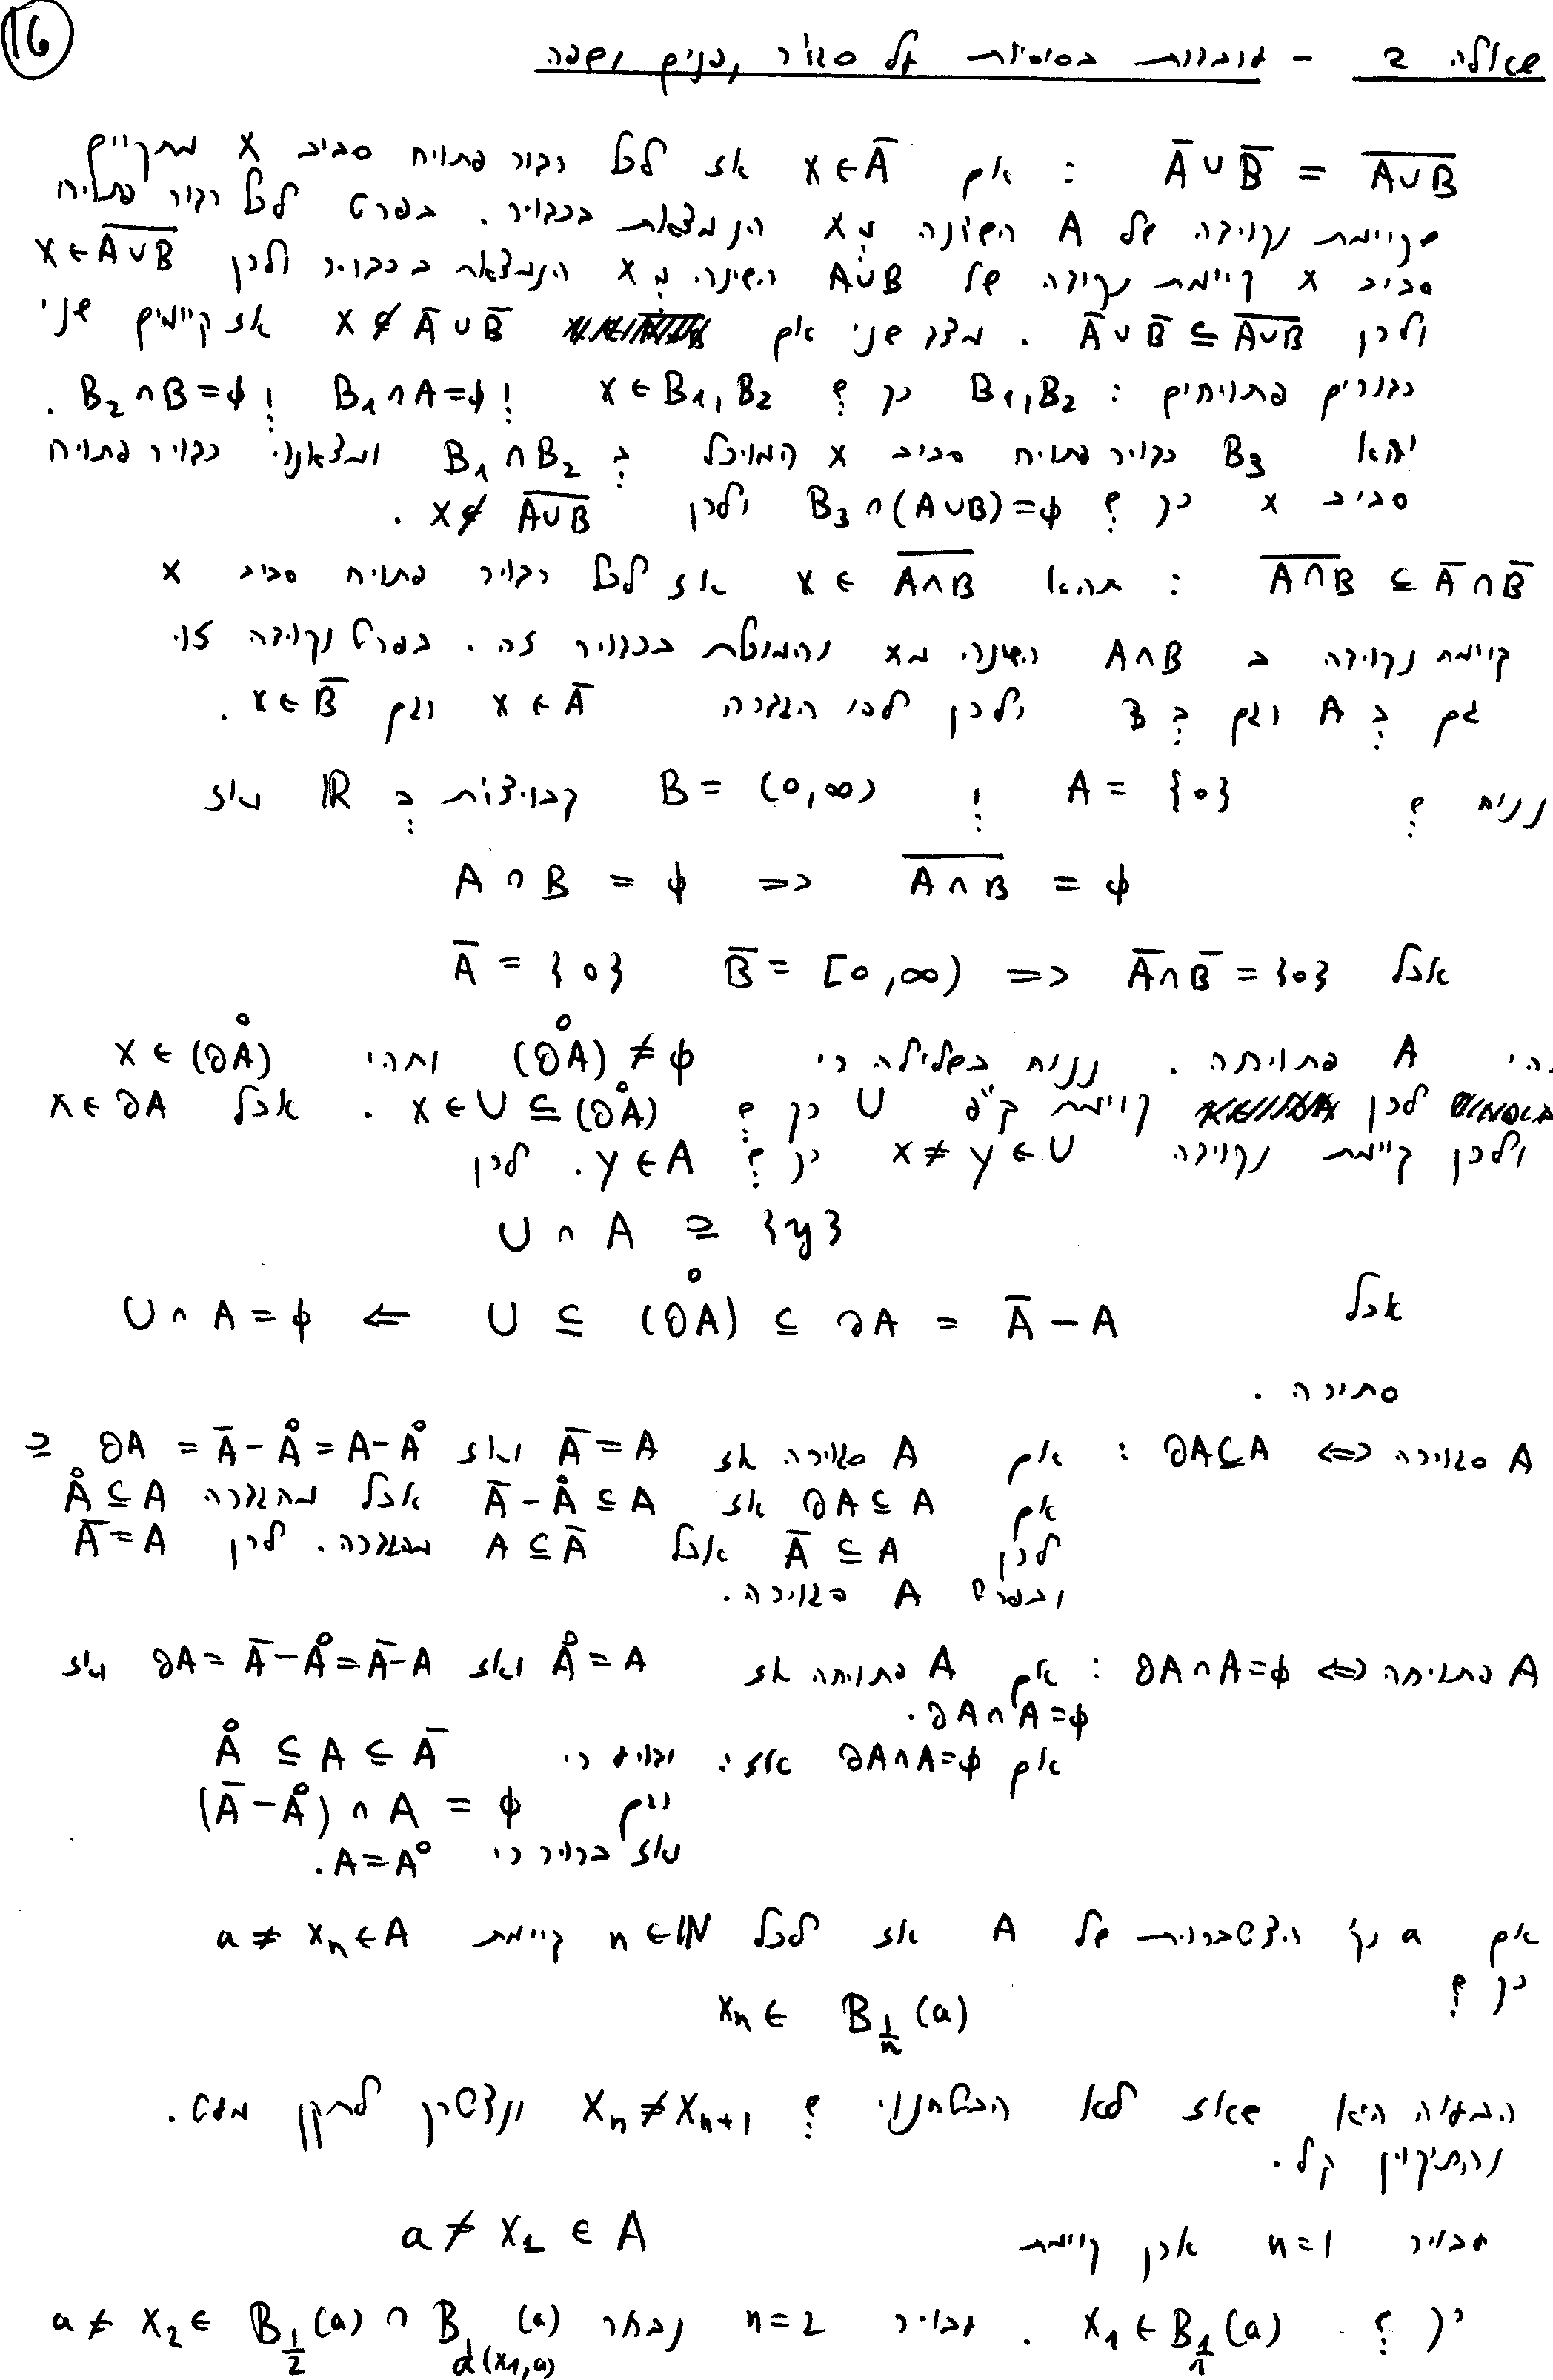 16
שאלה 2 - עובדות בסיסיות על סגור, פנים ושפה
Ā∪B̄ = \overline{A∪B} : אם x∈Ā אז לכל כדור פתוח סביב x מתקיים
שקיימת נקודה של A השונה מ-x הנמצאת בכדור. בפרט לכל כדור פתוח
סביב x קיימת נקודה של A∪B השונה מ-x הנמצאת בכדור ולכן x∈\overline{A∪B}
ולכן Ā∪B̄ ⊆ \overline{A∪B}. מצד שני אם x∉Ā∪B̄ אז קיימים שני
כדורים פתוחים: B₁,B₂ כך ש- x∈B₁,B₂ ו- B₁∩A=φ ו- B₂∩B=φ.
יהא B₃ כדור פתוח סביב x המוכל ב- B₁∩B₂ ומצאנו כדור פתוח
סביב x כך ש- B₃∩(A∪B)=φ ולכן x∉\overline{A∪B}.
\overline{A∩B} ⊆ Ā∩B̄ : תהא x∈\overline{A∩B} אז לכל כדור פתוח סביב x
קיימת נקודה ב A∩B השונה מx והמוכלת בכדור זה. בפרט נקודה זו
גם ב- A וגם ב- B ולכן לפי הגדרה x∈Ā וגם x∈B̄.
נניח ש- A = {0} ו- B = (0,∞) קבוצות ב- ℝ ואז
A∩B = φ => \overline{A∩B} = φ
אבל Ā = {0} B̄ = [0,∞) => Ā∩B̄ = {0}
תהי A פתוחה. נניח בשלילה כי (∂A)° ≠ φ ותהי x∈(∂A)°
לכן קיימת ק"פ U כך ש- x∈U⊆(∂A)°. אבל x∈∂A
ולכן קיימת נקודה x≠y∈U כך ש- y∈A. לכן
U∩A ⊇ {y}
אבל U ⊆ (∂A)° ⊆ ∂A = Ā-A ⇐ U∩A=φ
סתירה.
A סגורה <=> ∂A⊆A : אם A סגורה אז Ā=A ואז ∂A = Ā-Å = A-Å ⊆
אם ∂A⊆A אז Ā-Å⊆A אבל מהגדרה Å⊆A
לכן Ā⊆A אבל A⊆Ā מהגדרה. לכן Ā=A
ובפרט A סגורה.
A פתוחה <=> ∂A∩A=φ : אם A פתוחה אז Å=A ואז ∂A=Ā-Å=Ā-A ואז
∂A∩A=φ.
אם ∂A∩A=φ אזי: ידוע כי Å ⊆ A ⊆ Ā
וגם (Ā-Å)∩A = φ
ואז ברור כי A=A°.
אם a נק' הצטברות של A אז לכל n∈ℕ קיימת a≠xₙ∈A
כך ש-
xₙ ∈ B_{1/n}(a)
הבעיה היא שאז לא הבטחנו ש- xₙ≠xₙ₊₁ ונצטרך לתקן מעט.
והתיקון קל.
עבור n=1 אכן קיימת a≠x₁∈A
כך ש- x₁∈B_{1/1}(a). עבור n=2 נבחר a≠x₂∈B_{1/2}(a)∩B_{d(x₁,a)}(a)